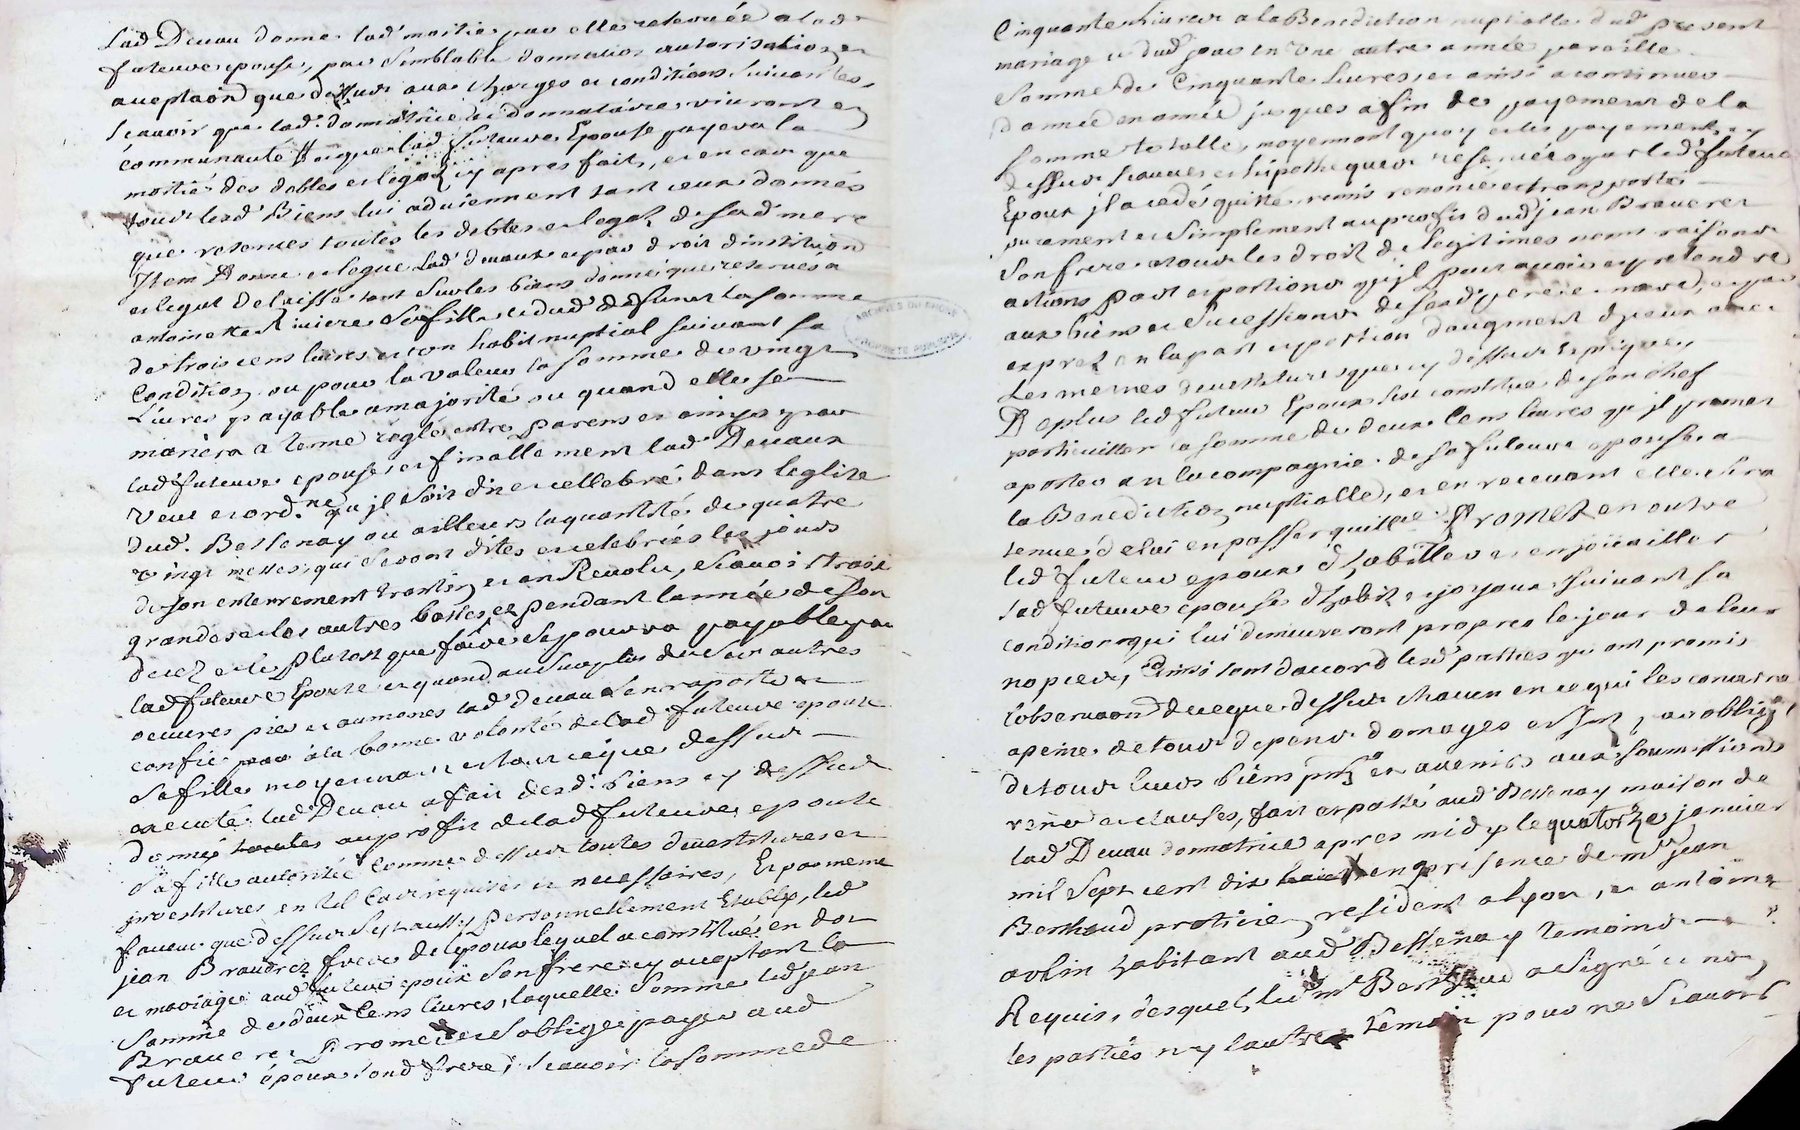 Lad Devau donne lad moitié par elle retenuée a lad
futeuve epouse, par semblable donnation autorisation et
aceptaõn que dessus aux charges et conditions suivantes,
scavoir que lad. donnatrice et donnataires vivront en
communauté et que lad futeuve Epouse payera la
moitié des debtes et legatz cy apres fait, et en cas que
tous lesd Biens lui adviennent tant ceux donnés
que retenues toutes les debtes et legatz de sad mere
Item Donne et legue Lad devaux et par droit dinstituõn
et legat delaisse tant sur les biens donné que reservés a
antoinette sa fille et dud deffunct la somme
de trois cens livres et un habit nuptial suivant sa
Condition ou pour la valeur la somme de vingt
Livres payable a majorité ou quand elle se
mariera a terme reglé entre parens et amys par
lad futeuve epouse, et finallement lad Devaux
Veut et ordne qu jl soit dit et cellebré dans leglise
dud. Bessenay ou ailleurs la quantité de quatre
vingt messes qui seront dites et celebrées les jours
de son enterrement trantin et an Revolu, scavoir trois
grandes et les autres basses et pendant lannée de son
decez et le plutost que faire se pourra payable par
lad futeuve Epouse et quand au surplus de ses autres
oeuvres pies et aumones lad devau sen raporte et
confie a la bonne volonté de lad futeuve epouse
sa fille moyennant et tout ce que dessus
execute lad Devau a fait desd. biens cy dessus
donnés au profit de lad futeuve epouse
sa fille autorisée comme dessus toutes devestitures et
jnvestitures en tel cas requises et necessaires, Et par meme
faveur que dessus sest aussy personnellement Etably, led
jean Braveret frere de lepoux lequel a constitué en dot
et mariage aud futeur epoux son frere cy aceptant la
somme de deux Cens livres laquelle somme led jean
Braveret promet et soblige payer aud
futeur époux sond frere, scavoir la somme de
Cinquante livres a la Benediction nuptialle dud present
mariage et dud jour en Une autre année pareille
somme de Cinquante livres, et ainsi a continuer
dannée en année jusques a fin de payement de la
somme totalle, moyennant quoy et les payements cy
dessus sauves et hipotheques reservée par led futeur
Epoux jl a cedé quitté remis renoncé et transporté
purement et simplement au profit dud jean Braveret
son frere tous les droitz de legitimes noms raisons
actions part et portions qu jl peut avoir et pretendre
aux biens et sucessions de sesd pere et mere, et par
exprez en la part et portion daugment dyceux avec
Les memes devestitures que cy dessus Expliquées
De plus led futeur Epoux sest constitué de son chef
particuillier la somme de deux Cens livres qu jl promet
aporter en la compagnie de sa futeuve epouse a
la Benediction nuptialle, et en recevant elle sera
tenue de lui en passer quittce. Promet en outre
led futeur epoux dhabiller et enjoüailler
lad futeuve epouse dhabitz et joyaux suivant sa
condition qui lui demeureront propres le jour de leur
nopces, Ainsi sont daccord lesd parties qui ont promis
lobservaõn de ce que dessus chacun en ce qui les concerne
a peine de tous depens domages et jnts, par obliga
de tous leurs biens pnts et avenirs aux soumissions
renõ et clauses, fait et passé aud Bessenay maison de
lad Devau donnatrice apres midy le quatorze janvier
mil Sept cent dix en presence de mr jean
Berthaud praticien resident a lyon, et antoine
aublin habitant aud Bessenay temoins
Requis, desquels led mr Berthaud a signé et non
les parties ny lautre temoin pour ne scavoir